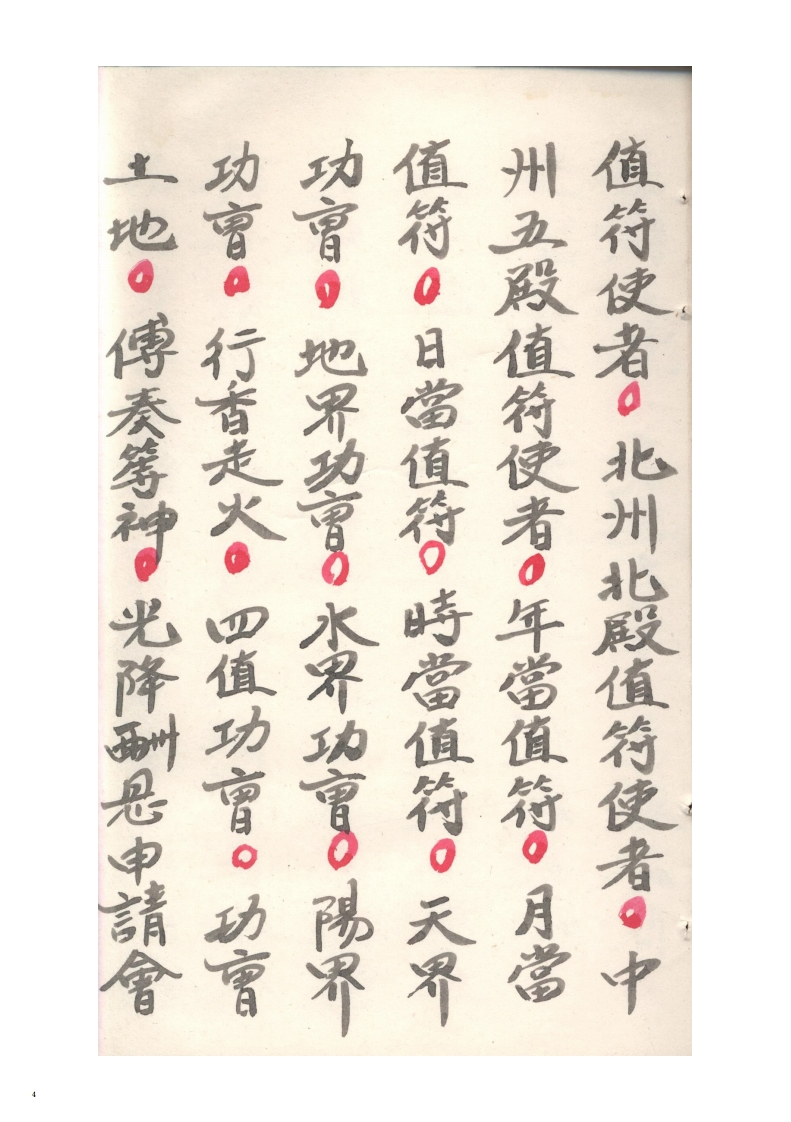 值符使者○北州北殿值符使者○中
州五殿值符使者○年當值符○月當
值符○日當值符○時當值符○天界
功曹○地界功曹○水界功曹○陽界
功曹○行香走火○四值功曹○功曹
土地○傳奏等神○光降酬恩申請會
4